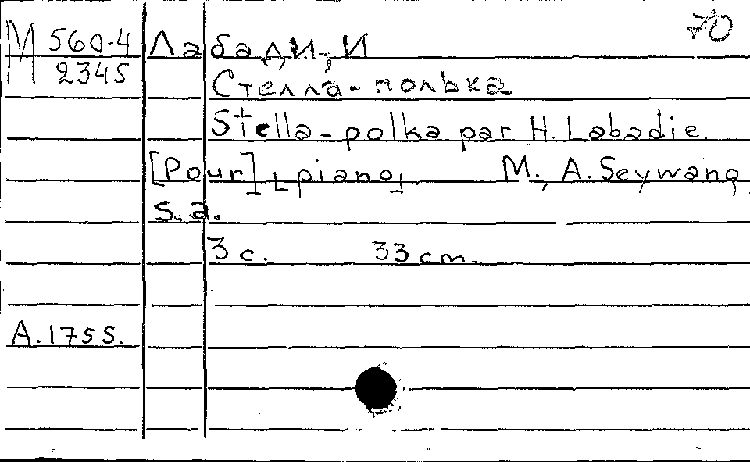 70
М 560-4
2345
Лабади, И
Стелла-полька
Stella-polka par H. Labadie.
[Pour] piano M., A. Seywang
s.a.
3 c. 33 cm.
A.1755.